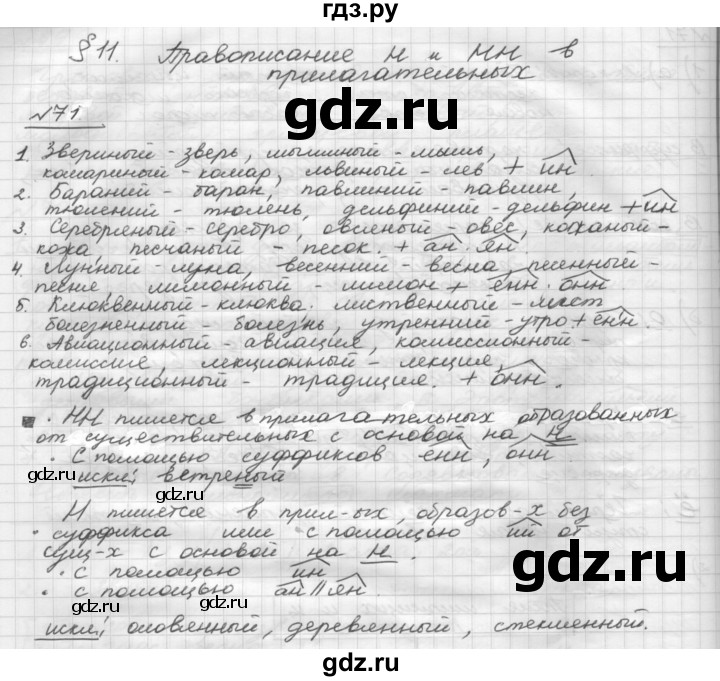 гдз.ру
§ 11. Правописание Н и НН в
прилагательных
gdz.ru
№71
1. Звериный - зверь, мышиный - мышь,
комариный - комар, львиный - лев + ин
2. Бараний - баран, павлиний - павлин,
тюлений - тюлень, дельфиний - дельфин + ин
3. Серебряный - серебро, овсяный - овёс, кожаный -
кожа, песчаный - песок. + ан. ян.
4. Лунный - луна, весенний - весна, песенный -
песня, лимонный - лимон + енн. онн
5. Клюквенный - клюква. лиственный - лист
болезненный - болезнь, утренний - утро + енн.
6. Авиационный - авиация, комиссионный -
комиссия, лекционный - лекция,
традиционный - традиция. + онн.
gdz.ru
· НН пишется в прилагательных образованных
от существительных с основой на Н
· С помощью суффиксов енн, онн
gdz.ru gdz.ru
искл; ветреный
Н пишется в прил-ых, образов-х без
· суффикса или с помощью ий от
сущ-х с основой на Н.
· с помощью ин
· с помощью ан || ян.
gdz.ru gdz.ru
искл; оловянный, деревянный, стеклянный.
gdz.ru
gdz.ru